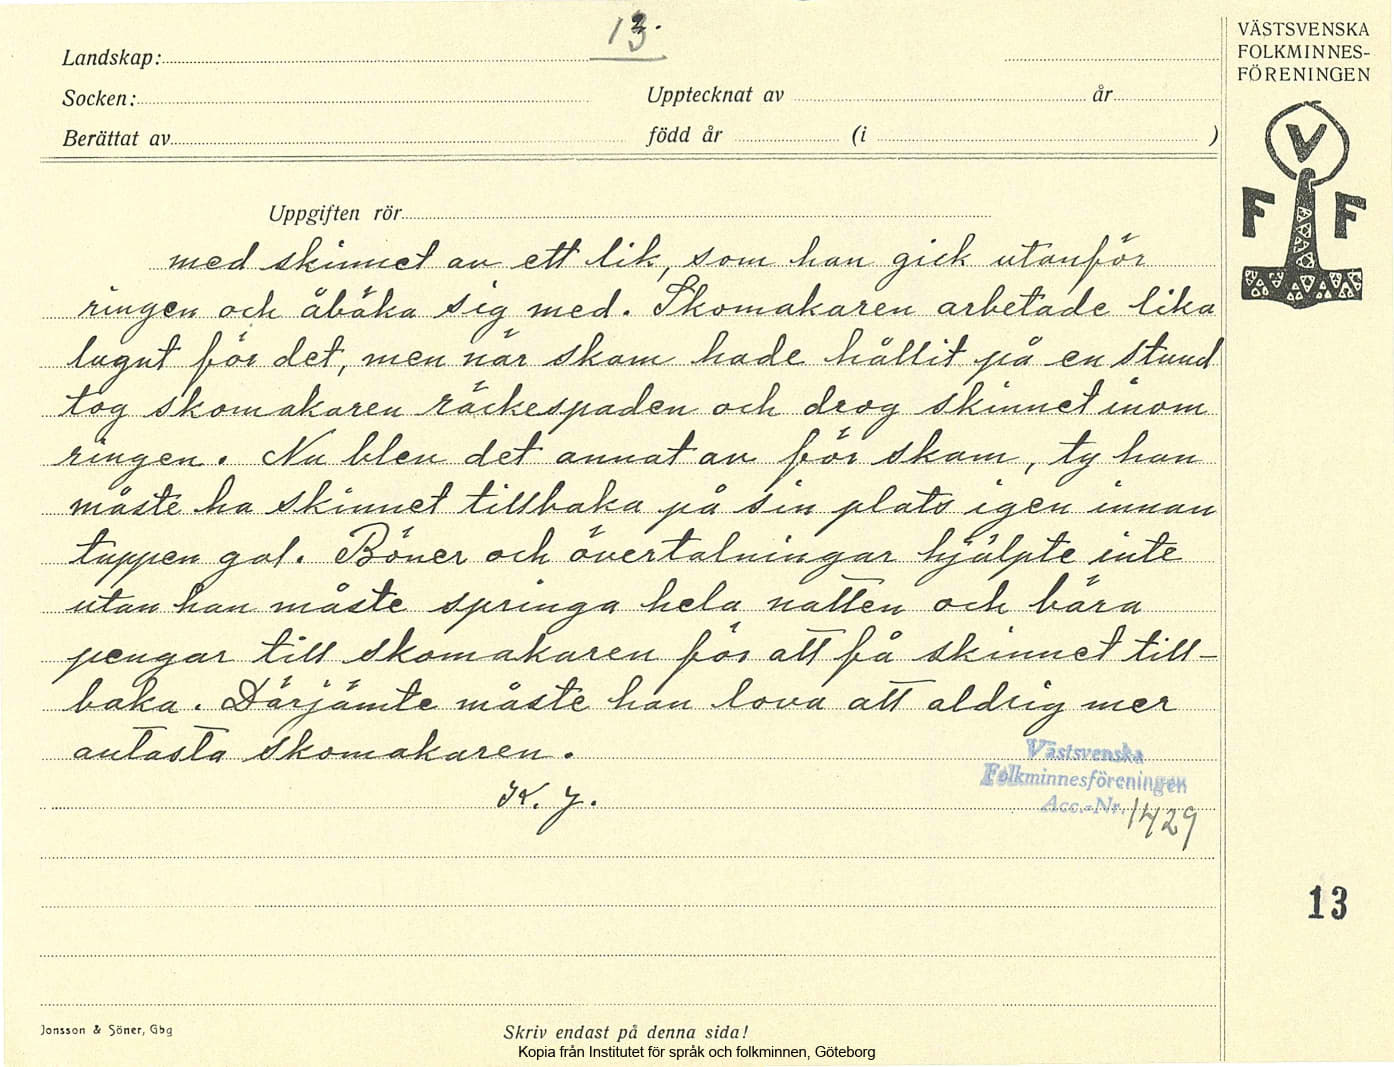 13 2.
Landskap:
Socken:
Upptecknat av år
Berättat av
född år (i )
VÄSTSVENSKA
FOLKMINNES-
FÖRENINGEN
V
F F
Uppgiften rör
med skinnet av ett lik, som han gick utanför
ringen och åbäka sig med. Skomakaren arbetade lika
lugnt för det, men när skam hade hållit på en stund
tog skomakaren räckespaden och drog skinnet inom
ringen. Nu blev det annat av för skam, ty han
måste ha skinnet tillbaka på sin plats igen innan
tuppen gol. Böner och övertalningar hjälpte inte
utan han måste springa hela natten och bära
pengar till skomakaren för att få skinnet till-
baka. Därjämte måste han lova att aldrig mer
antasta skomakaren.
K. J.
Västsvenska
Folkminnesföreningen
Acc.-Nr. 1429
13
Jonsson & Söner, Gbg
Skriv endast på denna sida!
Kopia från Institutet för språk och folkminnen, Göteborg